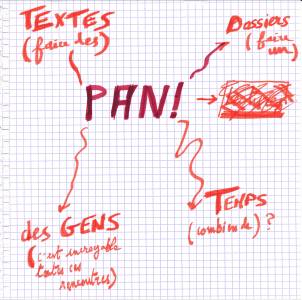 TEXTES
(faire des)
Dossiers
(faire un)
PAN!
des GENS
(c'est incroyable
toutes ces
rencontres)
TEMPS
(combien de) ?